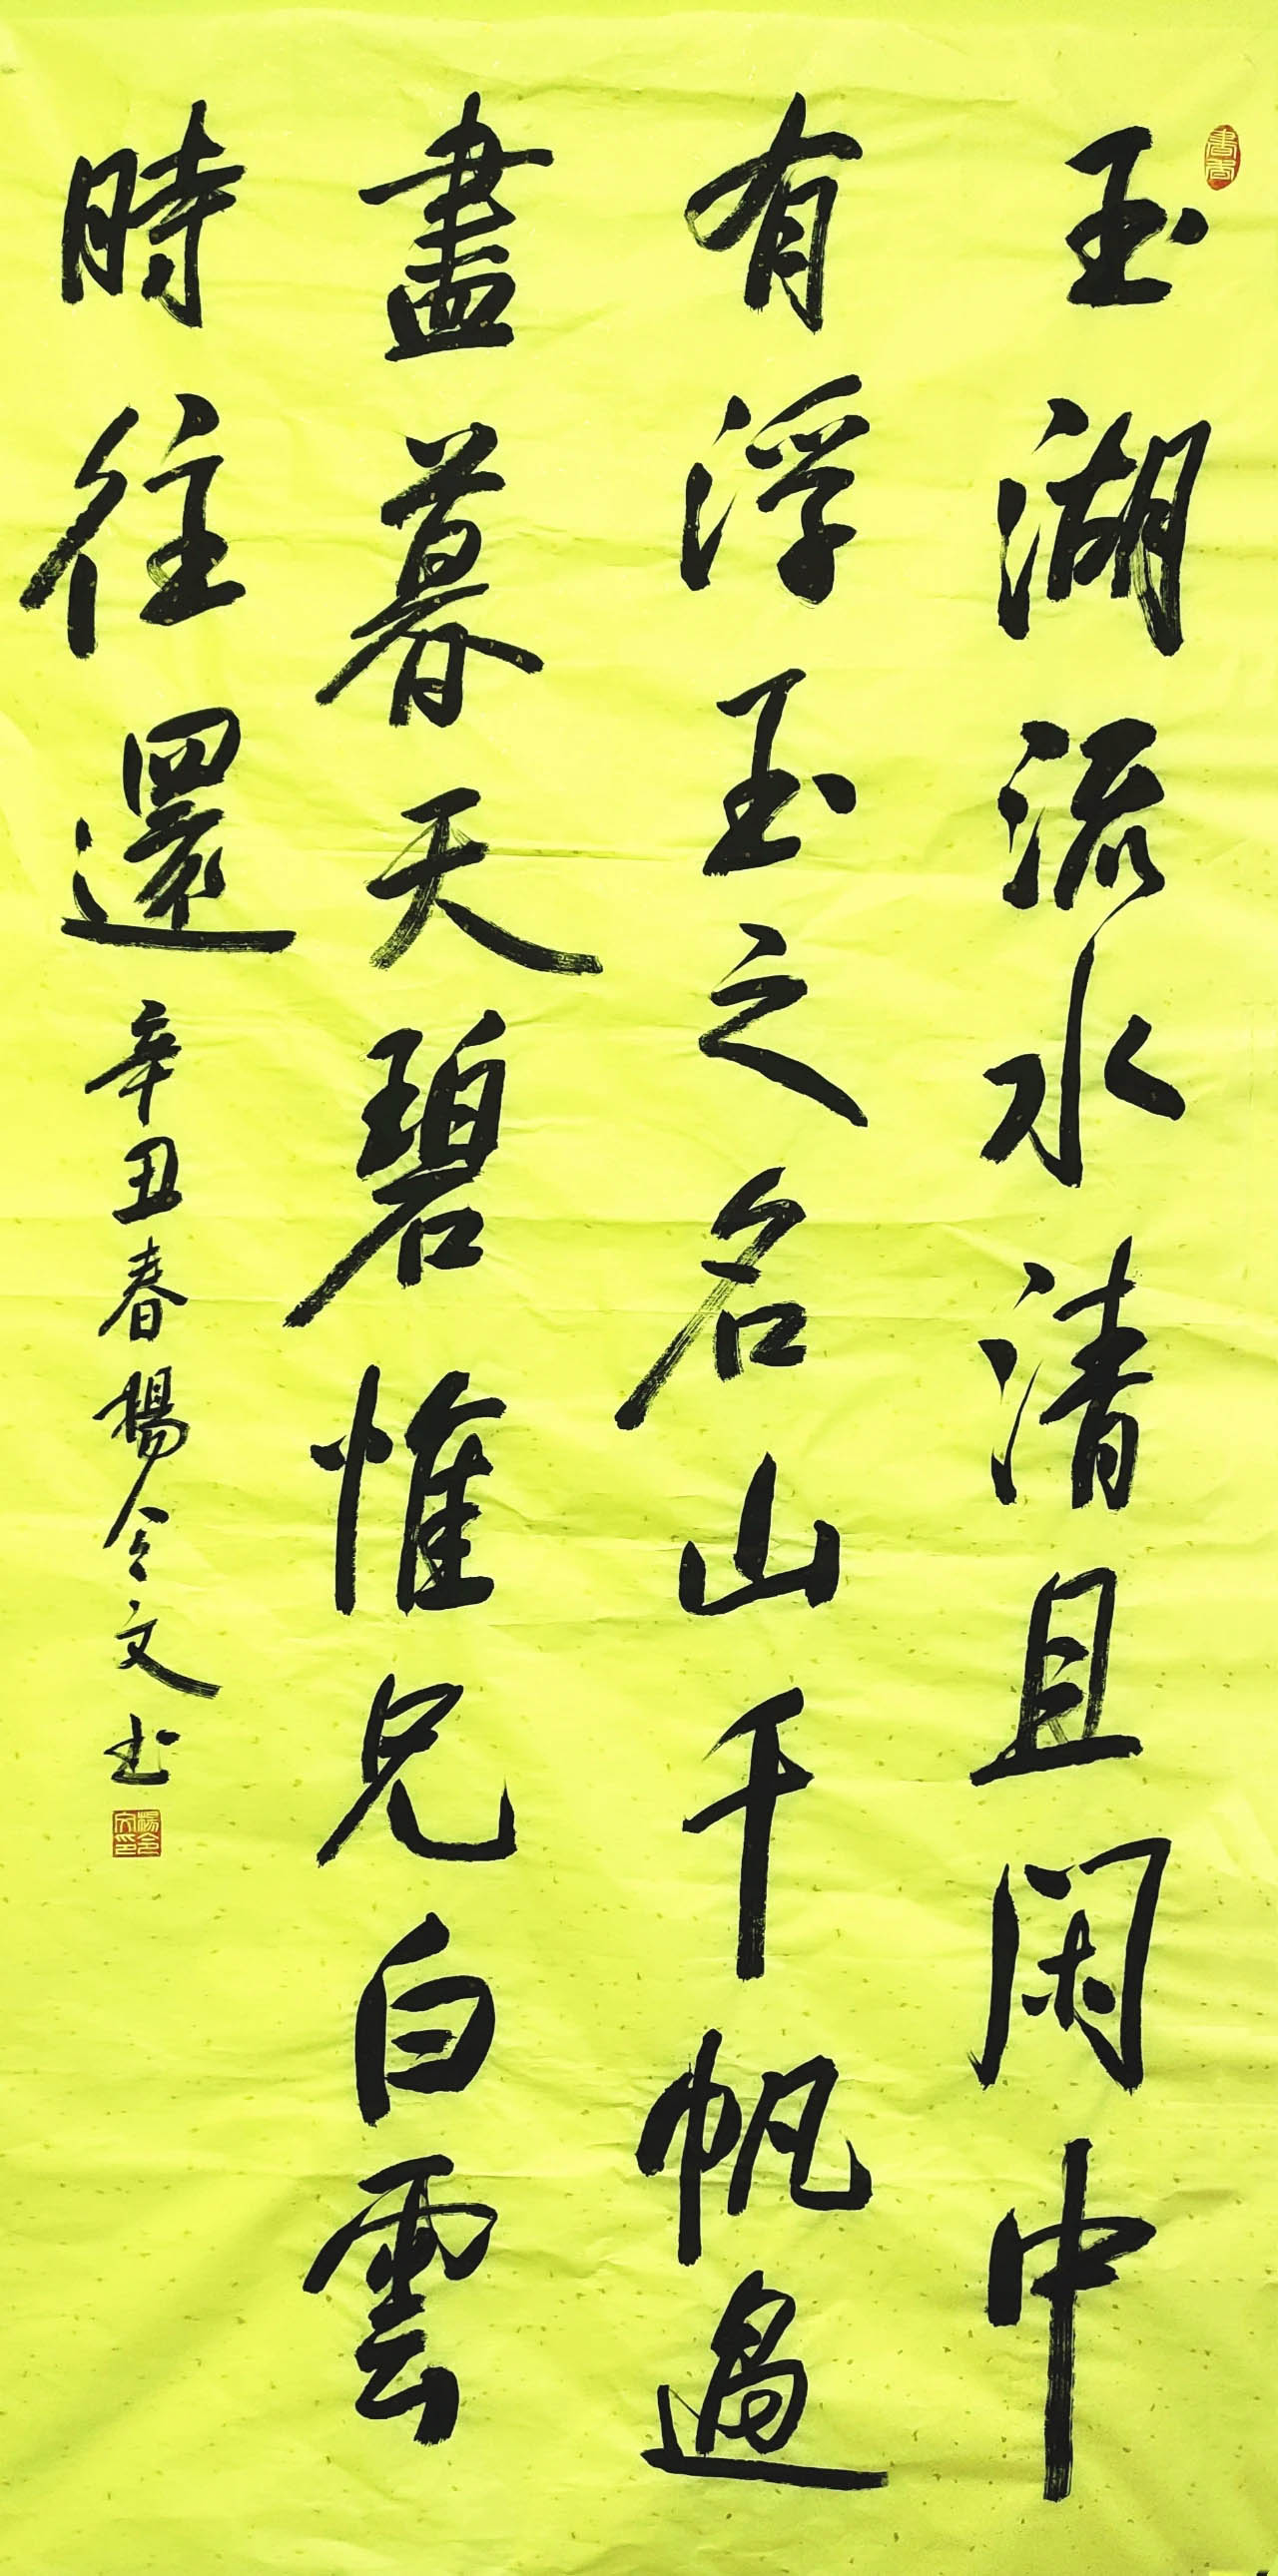 玉湖流水清且閑中
有浮玉之名山千帆過
盡暮天碧惟見白雲
時往還
辛丑春楊令文书
楊令文印